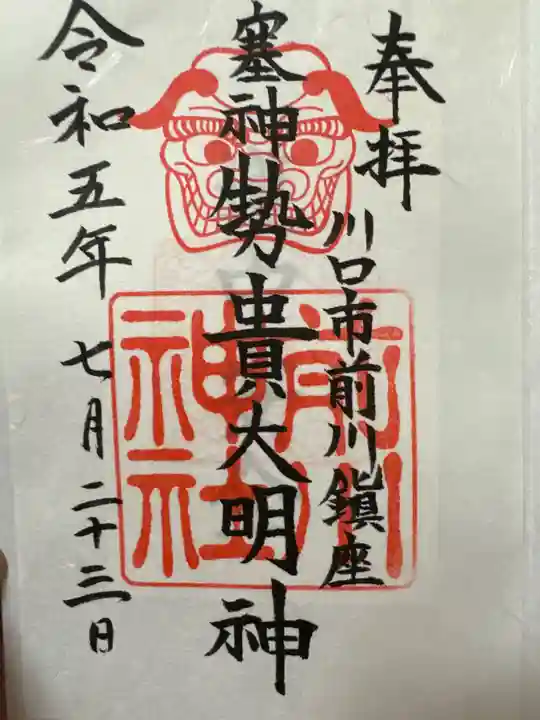 奉拝
川口市前川鎮座
塞神勢貴大明神
令和五年 七月二十三日
前川神社